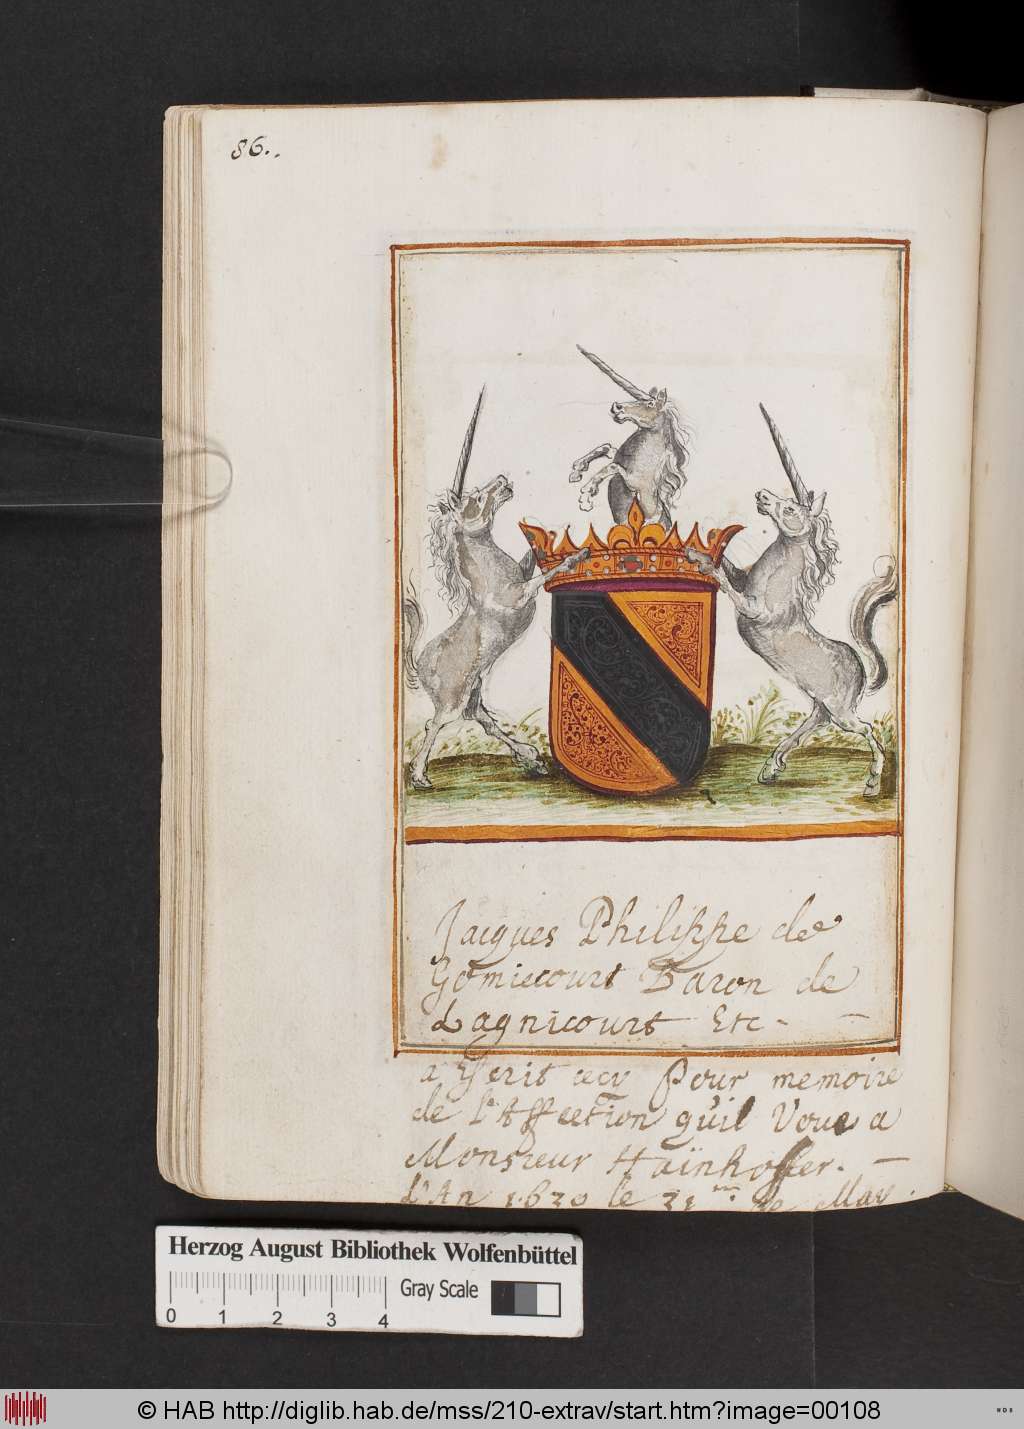 86..
Jacques Philippe de
Gomiecourt Baron de
Lagnicourt Etc -
a Escrit cecy Pour memoire
de l'Affection qu'il Voue a
Monsieur Haïnhoffer. -
L'An 1.630 le 31me. de May.
Herzog August Bibliothek Wolfenbüttel
0 1 2 3 4
Gray Scale
© HAB http://diglib.hab.de/mss/210-extrav/start.htm?image=00108
HDB